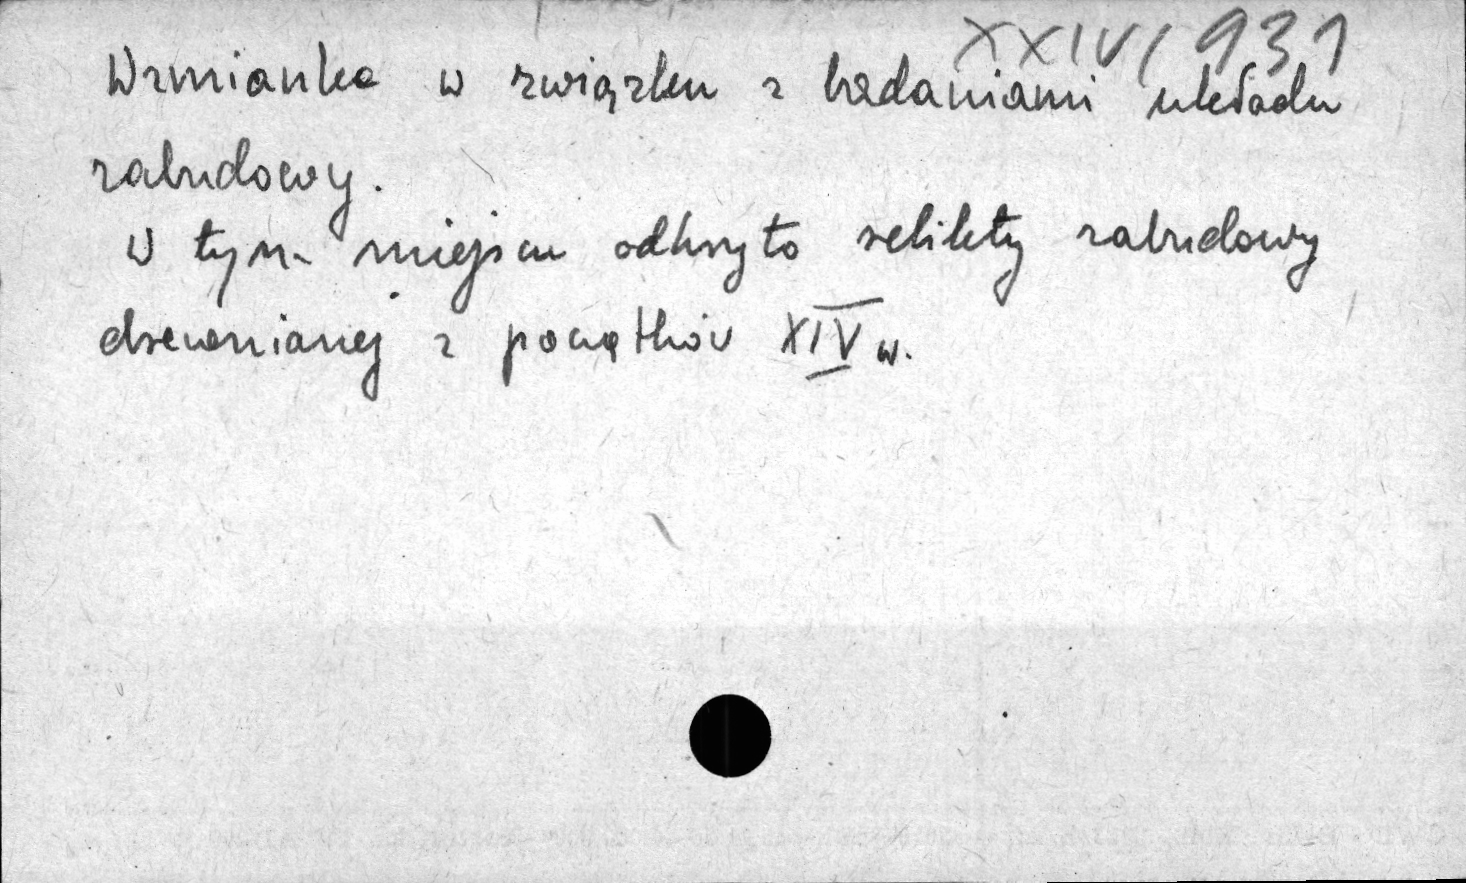 XXIV/931
Wzmianka w związku z badaniami układu
zabudowy.
W tym miejscu odkryto relikty zabudowy
drewnianej z początków XIV w.